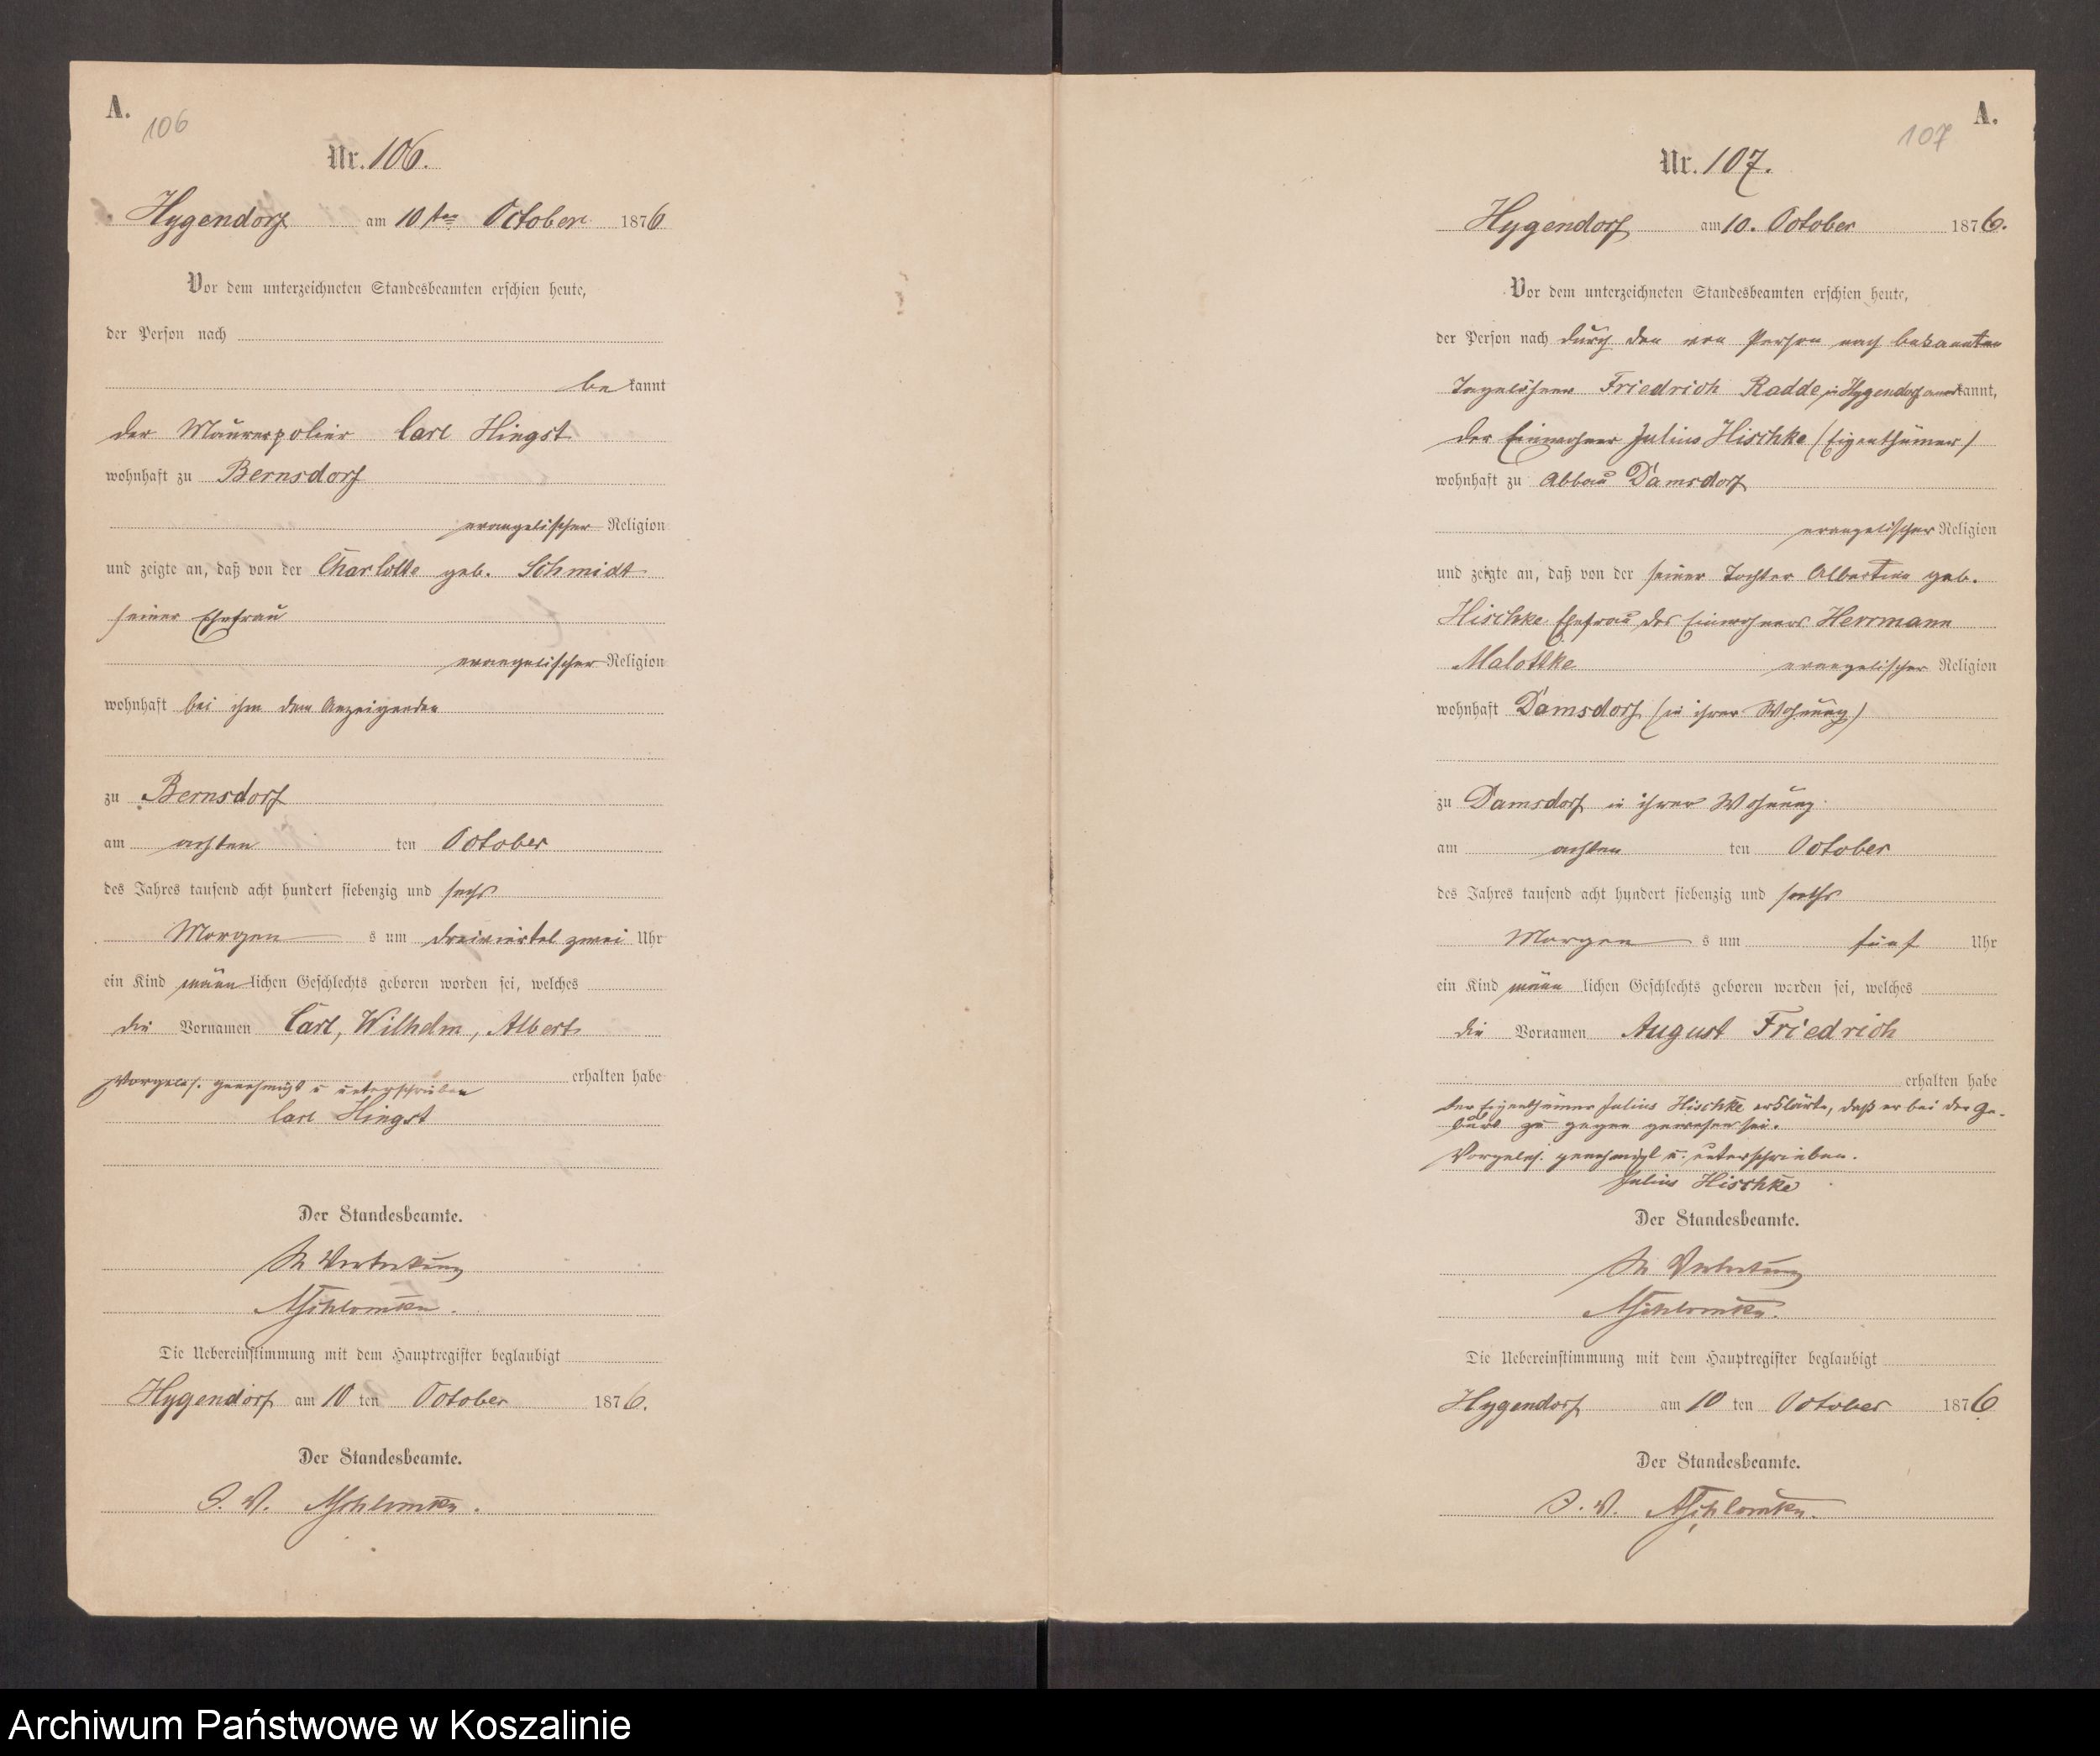 A.
106
Nr. 106.
Hygendorf am 10ten October 1876
Vor dem unterzeichneten Standesbeamten erschien heute,
der Person nach
bekannt
der Maurerpolier Carl Hingst
wohnhaft zu Bernsdorf
evangelischer Religion
und zeigte an, daß von der Charlotte geb. Schmidt
seiner Ehefrau
evangelischer Religion
wohnhaft bei ihm dem Anzeigenden
zu Bernsdorf
am achten ten October
des Jahres tausend acht hundert siebenzig und sechs
Morgens um dreiviertel zwei Uhr
ein Kind männlichen Geschlechts geboren worden sei, welches
die Vornamen Carl, Wilhelm, Albert
erhalten habe
Vorgeles. genehmigt u unterschrieben
Carl Hingst
Der Standesbeamte.
In Vertretung
Die Uebereinstimmung mit dem Hauptregister beglaubigt
Hygendorf am 10 ten October 1876.
Der Standesbeamte.
I. V.
A.
107
Nr. 107.
Hygendorf am 10. October 1876.
Vor dem unterzeichneten Standesbeamten erschien heute,
der Person nach durch den von Person nach bekannten
Tagelöhner Friedrich Radde in Hygendorf anerkannt,
der Einwohner Julius Hischke (Eigenthümer)
wohnhaft zu Abbau Damsdorf
evangelischer Religion
und zeigte an, daß von der seiner Tochter Albertine geb.
Hischke Ehefrau des Einwohners Herrmann
Malottke evangelischer Religion
wohnhaft Damsdorf (in ihrer Wohnung)
zu Damsdorf in ihrer Wohnung
am achten ten October
des Jahres tausend acht hundert siebenzig und sechs
Morgens um fünf Uhr
ein Kind männlichen Geschlechts geboren worden sei, welches
die Vornamen August Friedrich
erhalten habe
Der Eigenthümer Julius Hischke erklärte, daß er bei der Ge-
burt zu gegen gewesen sei.
Vorgeles. genehmigt u. unterschrieben.
Julius Hischke
Der Standesbeamte.
In Vertretung
Die Uebereinstimmung mit dem Hauptregister beglaubigt
Hygendorf am 10 ten October 1876
Der Standesbeamte.
I. V.
Archiwum Państwowe w Koszalinie